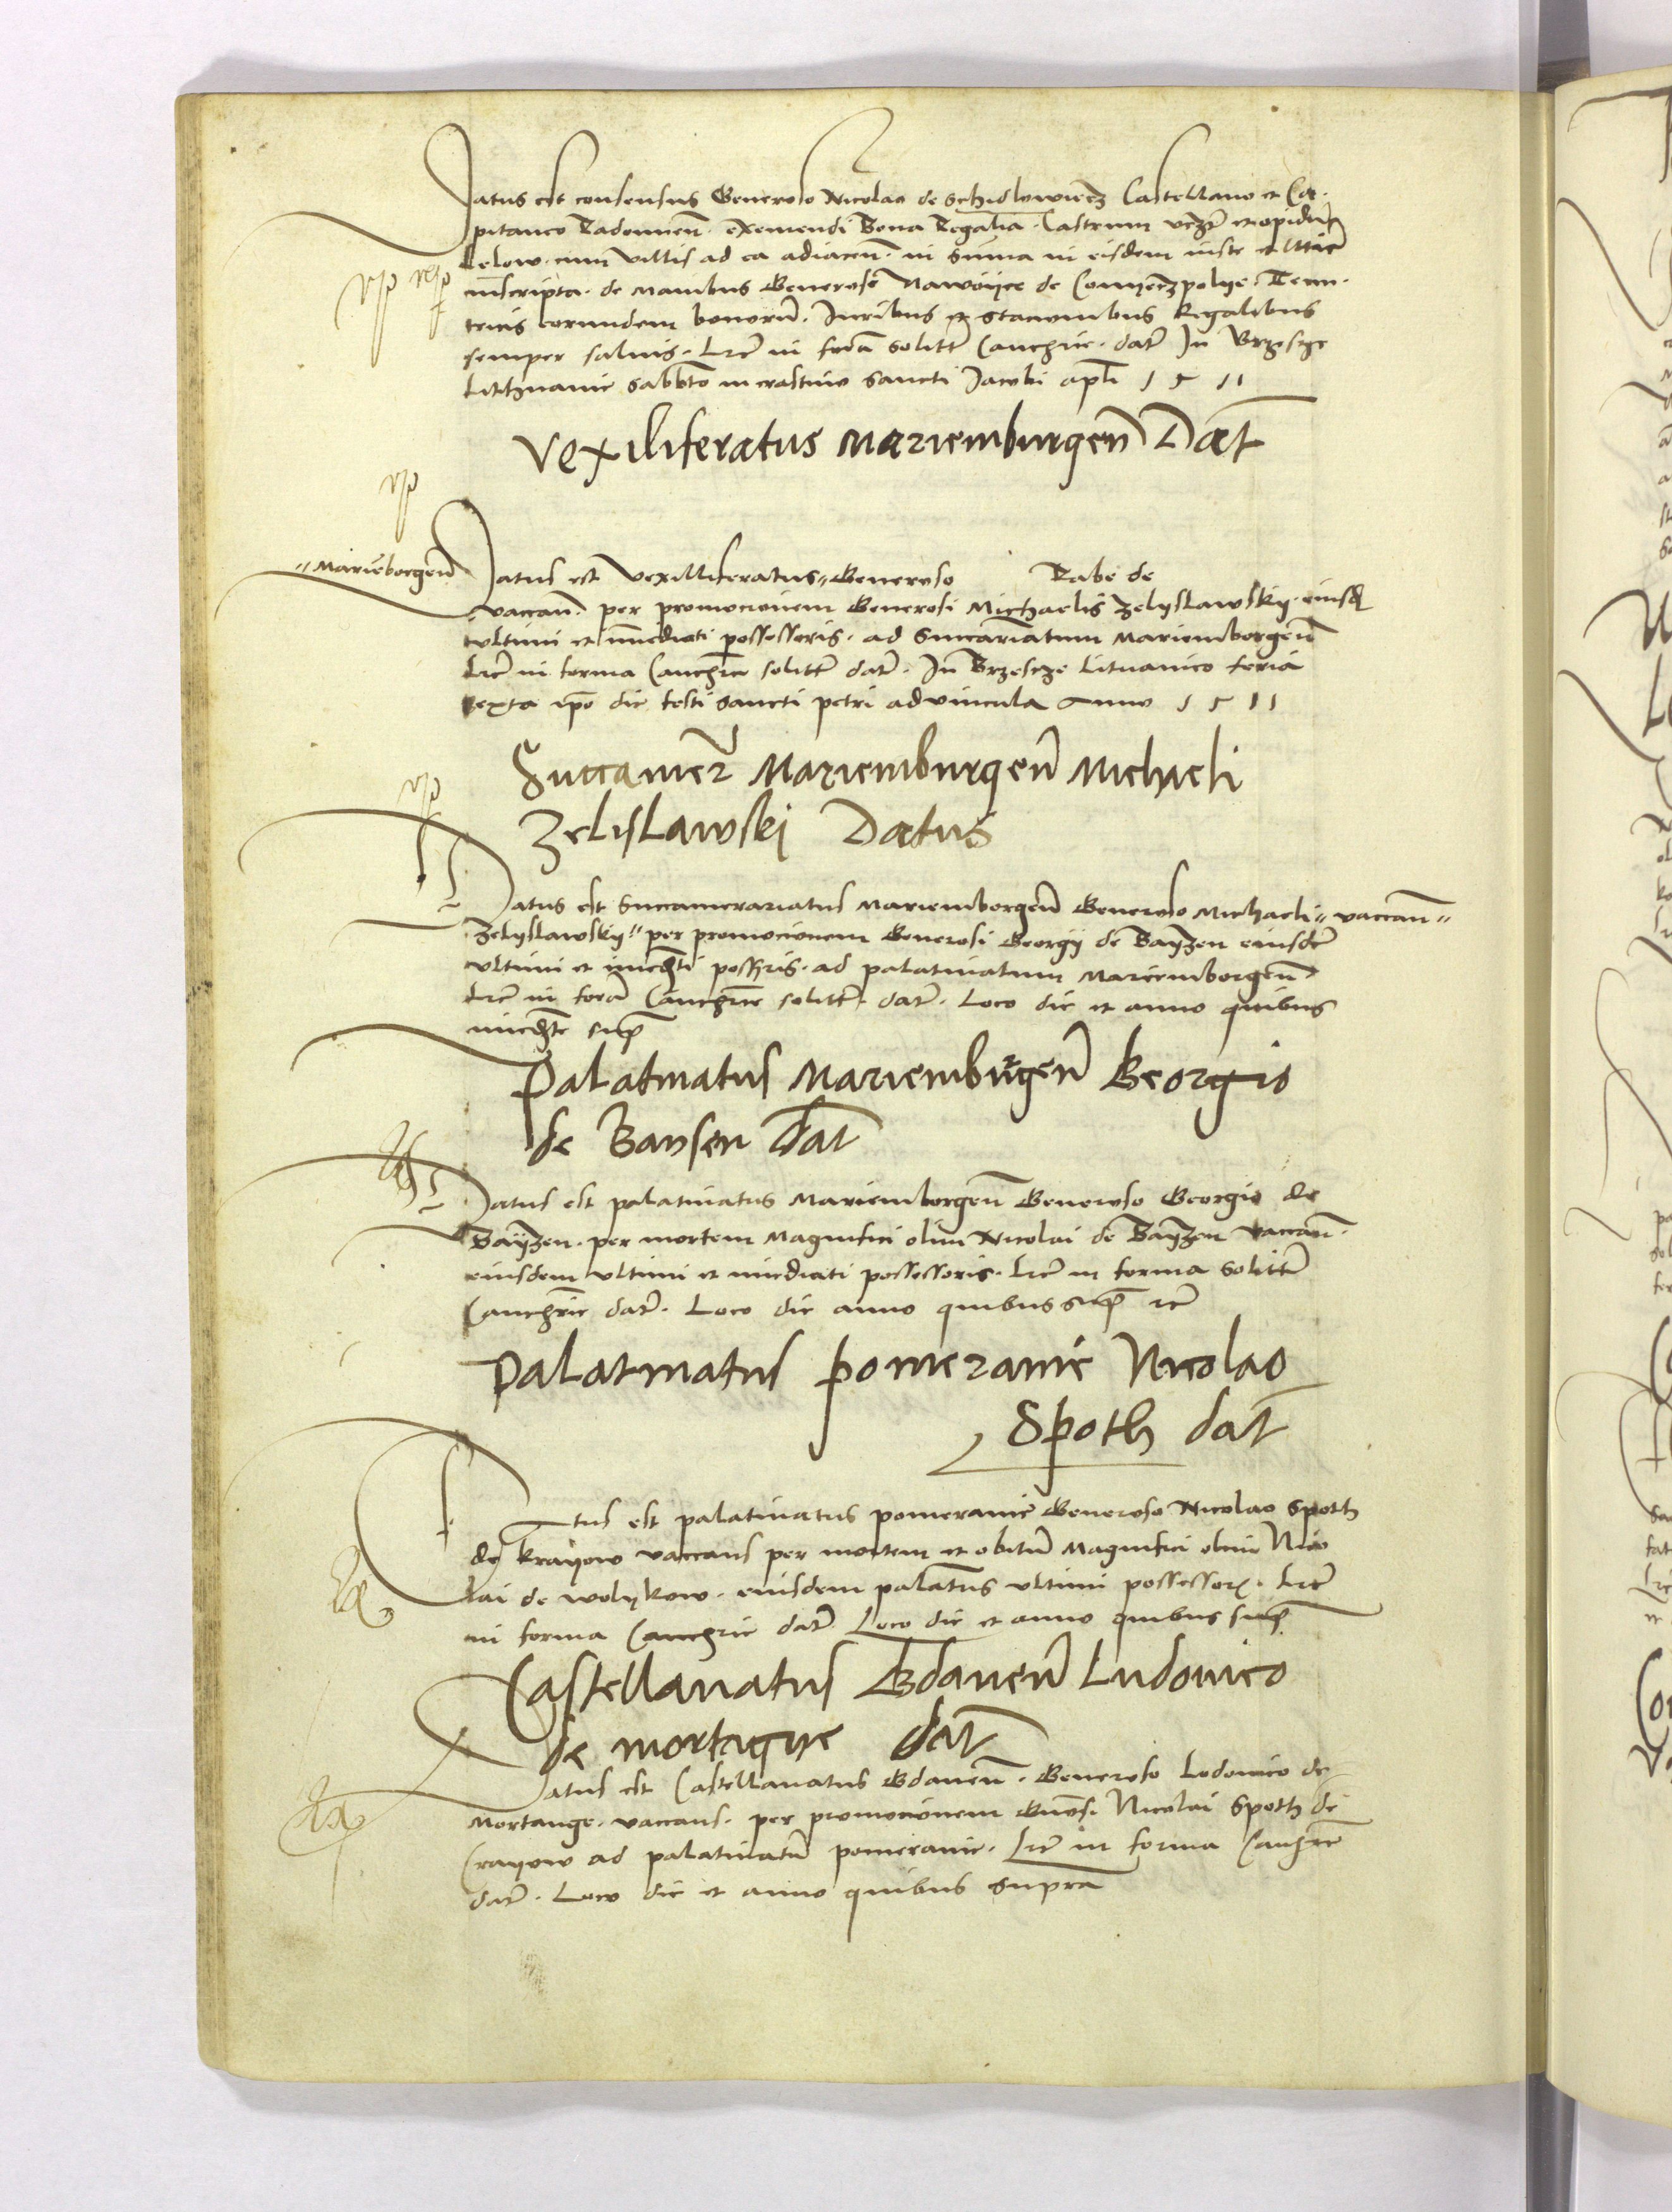 Datus est consensus Generoso Nicolao de Schidlowiecz Castellano et Ca-
pitaneo Radomien. exemendi Bona Regalia. Castrum et opidum
Lelow. cum villis ad ea adiacen. in summa in eisdem iuste et
inscripta. de manibus Generose Nawoyce de Conyeczpolye Tenu-
tricis eorundem bonorum. Iuribus et stacionibus Regalibus
semper salvis. Lre in forma solitt Cancellrie. datt In Brzescze
Lithuanie Sabbto in crastino Sancti Jacobi apli 1511
Vexiliferatus Mariemburgen Dat
Marieborgen
Datus est Vexilliferatus Generoso Rabe de
vaccan. per promocionem Generosi Michaelis Zelyslawsky. eiusd
ultimi et immediati possessoris. ad Succariatum Mariemborgen
Lre in forma Cancellrie solitt datt. In Brzescze Lituanico feria
sexta ipo die festi Sancti petri advincula Anno 1511
Succamer Mariemburgen Michaeli
Zelislawski Datus
Datus est Succamerariatus Mariemborgen Generoso Michaeli vaccan
Zelyslawsky per promocionem Generosi Georgy de Bayzen eiusde
ultimi et imediati possris. ad palatinatum Mariemborgen
Lre in forma Cancellrie solitt. datt. Loco die et anno quibus
immediate sup
Palatinatus Mariemburgen Georgio
de Baysen dat
Datus est palatinatus Mariemborgen Generoso Georgio de
Bayzen. per mortem Magnifici olim Nicolai de Bayzen Vaccan.
eiusdem ultimi et imediati possessoris. Lre in forma solitt
Cancellrie datt. Loco die anno quibus sup
Palatinatus pomeranie Nicolao
Spoth dat
Datus est palatinatus pomeranie Generoso Nicolao Spoth
de Krayow vaccans per mortem et obitum Magnifici olim Nico
lai de wolykow. eiusdem palatus ultimi possessor. Lre
in forma Cancellrie datt Loco die et anno quibus sup
Castellanatus Gdanen Ludovico
de mortagye dat
Datus est Castellanatus Gdanen. Generoso Lodovico de
Mortange. vaccans. per promocionem Gnosi Nicolai Spoth de
Crayow ad palatinatu pomeranie. Lre in forma Cancellrie
datt. Loco die et anno quibus supra